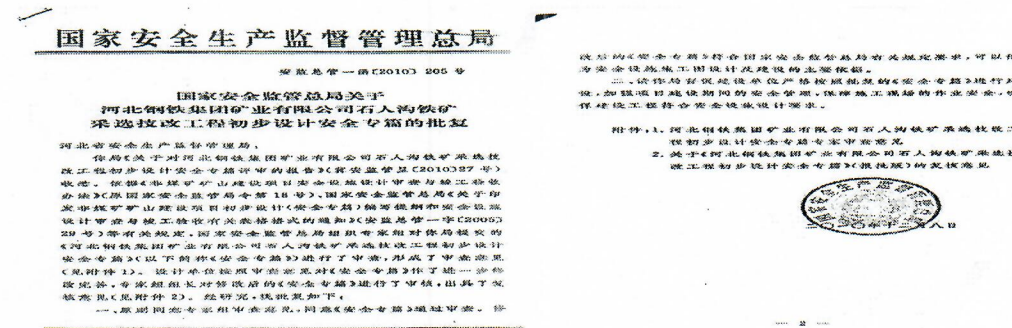 国家安全生产监督管理总局
安监总管一函〔2010〕205号
国家安全监管总局关于
河北钢铁集团矿业有限公司石人沟铁矿
采选技改工程初步设计安全专篇的批复
河北省安全生产监督管理局：
你局《关于对河北钢铁集团矿业有限公司石人沟铁矿采选技
改工程初步设计安全专篇评审的报告》（冀安监管显〔2010〕27号）
收悉。依据《非煤矿矿山建设项目安全设施设计审查与竣工验收
办法》（原国家安全监管局令第18号）、国家安全监管总局《关于印
发非煤矿矿山建设项目初步设计《安全专篇》编写提纲和安全设施
设计审查与竣工验收有关表格格式的通知》（安监总管一字〔2005〕
29号）等有关规定，国家安全监管总局组织专家组对你局提交的
《河北钢铁集团矿业有限公司石人沟铁矿采选技改工程初步设计
安全专篇》（以下简称《安全专篇》）进行了审查，形成了审查意见
（见附件1）。设计单位按照审查意见对《安全专篇》作了进一步修
改完善，专家组组长对修改后的《安全专篇》进行了审核，出具了复
核意见（见附件2）。经研究，现批复如下：
一、原则同意专家组审查意见，同意《安全专篇》通过审查。修
改后的《安全专篇》符合国家安全监管总局有关规定要求，可以作
为安全设施施工图设计及建设的主要依据。
二、请你局督促建设单位严格按照批复的《安全专篇》进行
设，加强项目建设期间的安全管理，保障施工现场的作业安全，
保建设工程符合安全设施设计要求。
附件：1. 河北钢铁集团矿业有限公司石人沟铁矿采选技改
程初步设计安全专篇专家审查意见
2. 关于《河北钢铁集团矿业有限公司石人沟铁矿采选
改工程初步设计安全专篇》（报批版）的复核意见
二〇一〇年十二月八日
2